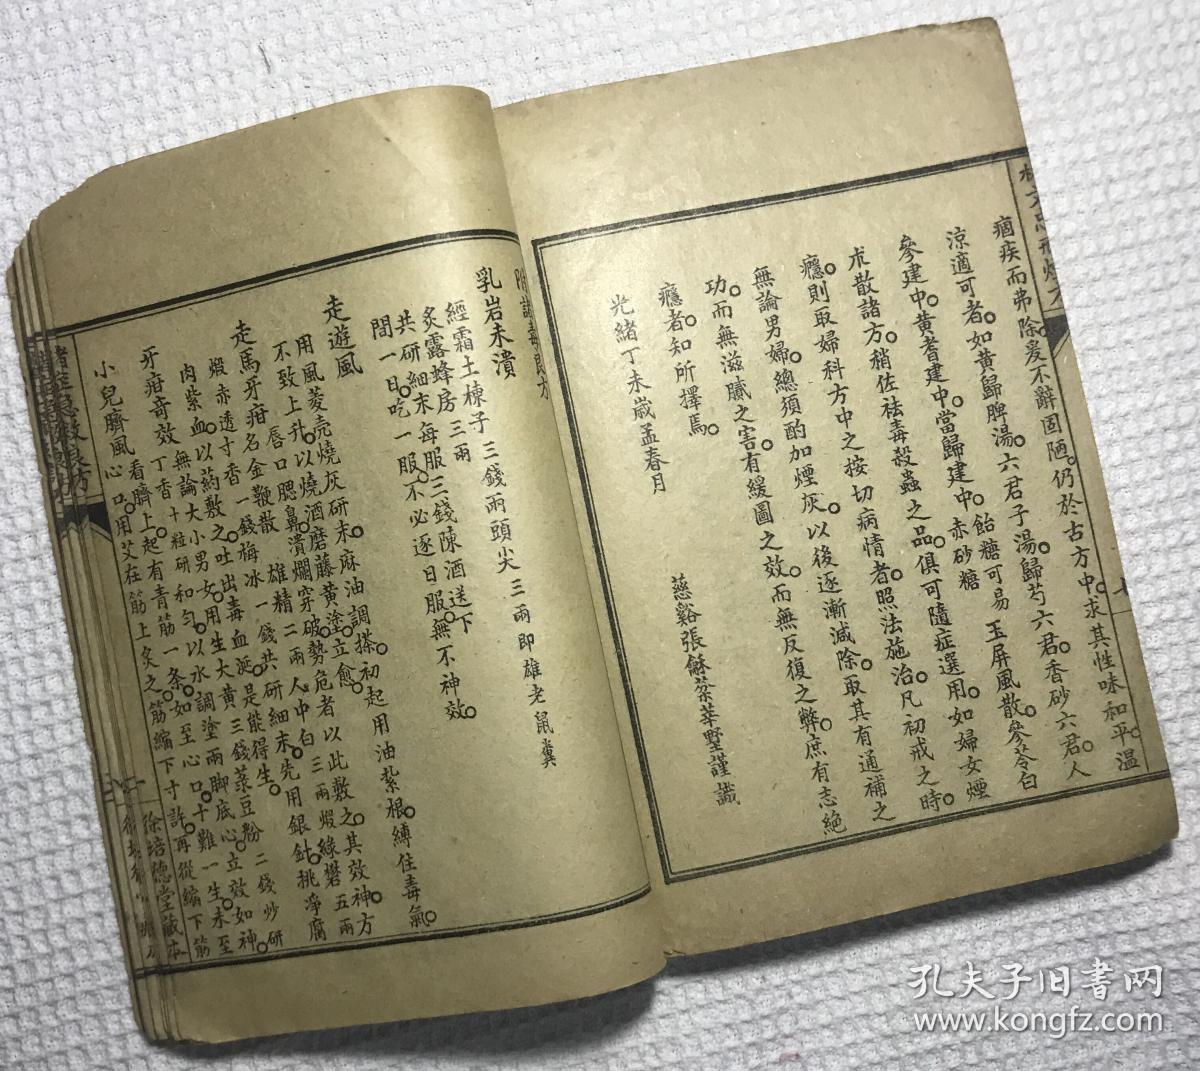 痼疾而弗除爰不辭固陋仍於古方中求其性味和平温
涼適可者如黄歸脾湯六君子湯歸芍六君香砂六君人
參建中黄耆建中當歸建中飴糖可易赤砂糖玉屏風散參苓白
朮散諸方稍佐祛毒殺蟲之品俱可隨症選用如婦女煙
癮則取婦科方中之按切病情者照法施治凡初戒之時
無論男婦總須酌加煙灰以後逐漸減除取其有通補之
功而無滋膩之害有緩圖之效而無反復之弊庶有志絶
癮者知所擇焉
光緒丁未歲孟春月
慈谿張龢棻莘墅謹識
七
乳岩未潰
經霜土楝子三錢兩頭尖三兩即雄老鼠糞
炙露蜂房三兩
共研細末每服三錢陳酒送下
間一日吃一服不必逐日服無不神效
走遊風
用風菱壳燒灰研末麻油調搽初起用油紮根縛住毒氣
不致上升以燒酒磨藤黄塗立愈
走馬牙疳名金鞭散
唇口腮鼻潰爛穿破勢危者以此敷之其效神方
雄精二兩人中白三兩煅綠礬五兩
煅赤透寸香一錢梅冰一錢共研細末先用銀針挑淨腐
肉紫血以药敷之吐出毒血涎是能得生
牙疳奇效
無論大小男女用生大黄三錢菉豆粉二錢炒研
丁香十粒研和匀以水調塗兩脚底心立效如神
小兒臍風
看臍上起有青筋一条如至心口十難一生未至
心口用艾在筋上炙之筋縮下寸許再從縮下筋
諸症急救良方
一
徐培德堂藏本
孔夫子旧书网
www.kongfz.com